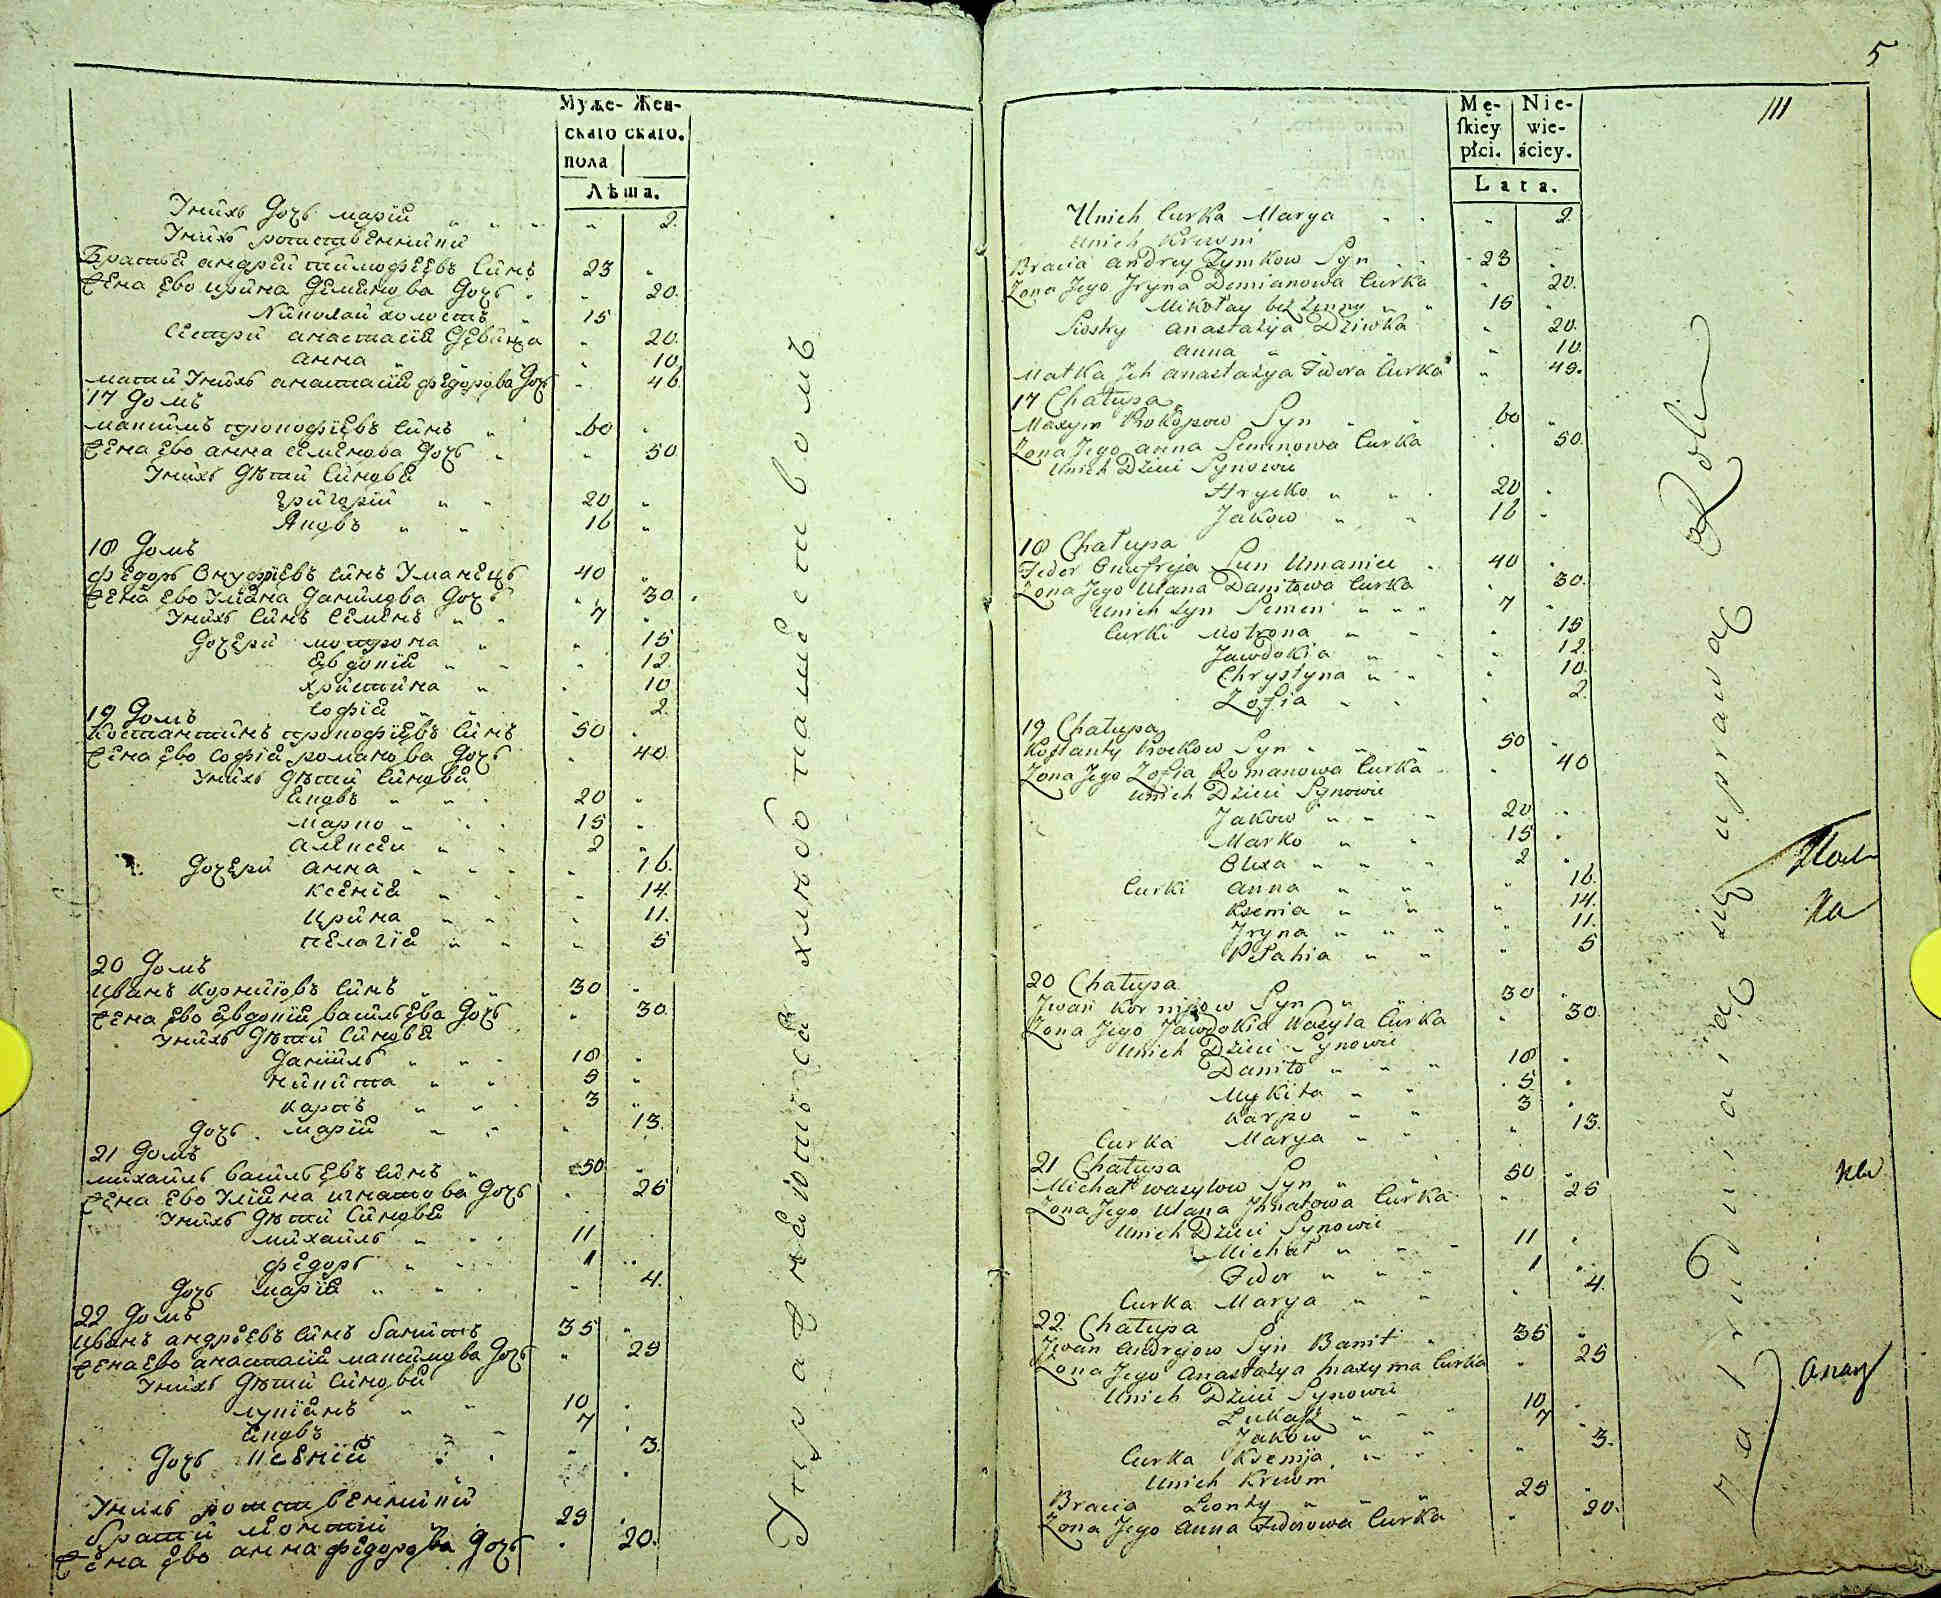 Муже- Жен-
скаго скаго.
пола
Лѣта.
Унихъ Дочь марія " " " 2.
Унихъ ротственники
Братья андрей тимофѣевъ Синъ 23 "
Жена ево ирина Деминова Дочь " " 20.
Николай холостъ 15
Сестри анастасія Дѣвица " 20.
анна " " 10.
мати Унихъ анастасія федорова Дочь " 46.
17 Домъ
максимъ прокофіевъ Синъ " 60 "
Жена ево анна семенова Дочь " " 50
Унихъ Дѣти Синови
григорій " " 20 "
Яковъ " " 16 "
18 Домъ
федоръ Онуфріевъ Синъ Уманецъ 40 "
Жена ево Уліана Данилова Дочь " 30.
Унихъ Синъ Семенъ " " 7 "
Дочери мотрона " " 15
Евдокія " " " 12.
Христина " " 10
Софія " " " 2.
19 Домъ
Костантинъ прокофіевъ Синъ 50 "
Жена ево Софія романова Дочь " 40
Унихъ Дѣти Синови
Яковъ " " " 20 "
марко " " " 15 "
алексѣй " " 2 "
Дочери анна " " " " 16.
ксенія " " " 14.
ирина " " " 11.
пелагія " " " 5
20 Домъ
иванъ корнііовъ Синъ " " 30 "
Жена ево Евдокія васильева Дочь " 30
Унихъ Дѣти Синови
Даніилъ " " " 18 "
никита " " 5 "
карпъ " " " 3 "
Дочь марія " " " 13.
21 Домъ
михаилъ васильевъ Синъ " 50 "
Жена ево Уліана игнатова Дочь " 25
Унихъ Дѣти Синови
михаилъ " " " 11
федоръ " " 1 "
Дочь марія " " " " 4.
22 Домъ
иванъ андрѣевъ Синъ банитъ 35 "
Жена ево анастасія максимова Дочь " 25
Унихъ Дѣти Синови
лукіанъ " " 10 "
Яковъ " " 7 "
Дочь ксенія " " " 3.
Унихъ ротственники
братья леонтій 25
Жена ево анна федорова Дочь " 20.
Упражнаются хлѣбопашествомъ
5
111
Mę- Nie-
skiéy wie-
płci. ściey.
Lata.
Unich Curka Marya " " " 2.
Unich Krewni
Bracia andrey Tymkow Syn " " 23 "
Zona Jego Jryna Demianowa Curka " 20.
Mikołay bez żenny " " 15 "
Siostry anastazya Dziwka " 20.
anna " " 10.
Matka Jch anastazya Fedora Curka " 49.
17 Chałupa
Maxym Prokopow Syn " " 60 "
Zona Jego anna Semenowa Curka " 50.
Unich Dzieci Synowie
Hrycko " " " 20 "
Jakow " " 16 "
18 Chałupa
Fedor Onufreja Syn Umaniec " 40 "
Zona Jego Ulana Daniłowa Curka " 30.
Unich Syn Semen " " " 7 "
Curki Motrona " " " 15
Jawdokia " " " 12.
Chrystyna " " " 10.
Zofia " " " 2.
19 Chałupa
Kostanty Prokow Syn " " " 50 "
Zona Jego Zofia Romanowa Curka " " 40
Unich Dzieci Synowie
Jakow " " " 20 "
Marko " " 15 "
Olixa " " " 2 "
Curki anna " " " 16.
Ksenia " " " 14.
Jryna " " " " 11.
Pełahia " " " 5
20 Chałupa
Jwan Korniiow Syn " " 30 "
Zona Jego Jawdokia Wasyla Curka " 30.
Unich Dzieci Synowie
Daniło " " " 18 "
Mykita " " 5 "
Karpo " " 3 "
Curka Marya " " " 13.
21 Chałupa
Michał wasylow Syn " " 50 "
Zona Jego Ulana Jhnatowa Curka " 25
Unich Dzieci Synowie
Michał " " " 11 "
Fedor " " " 1 "
Curka Marya " " " 4.
22 Chałupa
Jwan Andrejow Syn Banit " 35 "
Zona Jego Anastazya maxyma Curka " 25
Unich Dzieci Synowie
Łukasz " " " 10 "
Jakow " " 7 "
Curka Ksenija " " " 3.
Unich Krewni
Bracia Leonty " " " 25 "
Zona Jego anna Fedorowa Curka " 20.
zatrudniaiąc się uprawą Roli